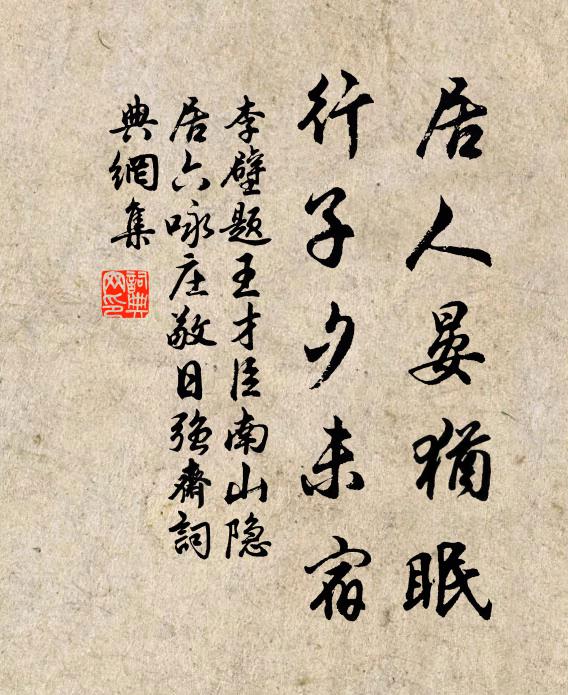 居人晏猶眠
行子夕未宿
李壁題王才臣南山隐
居六咏庄敬日強齋詞
典網集
詞典
网印